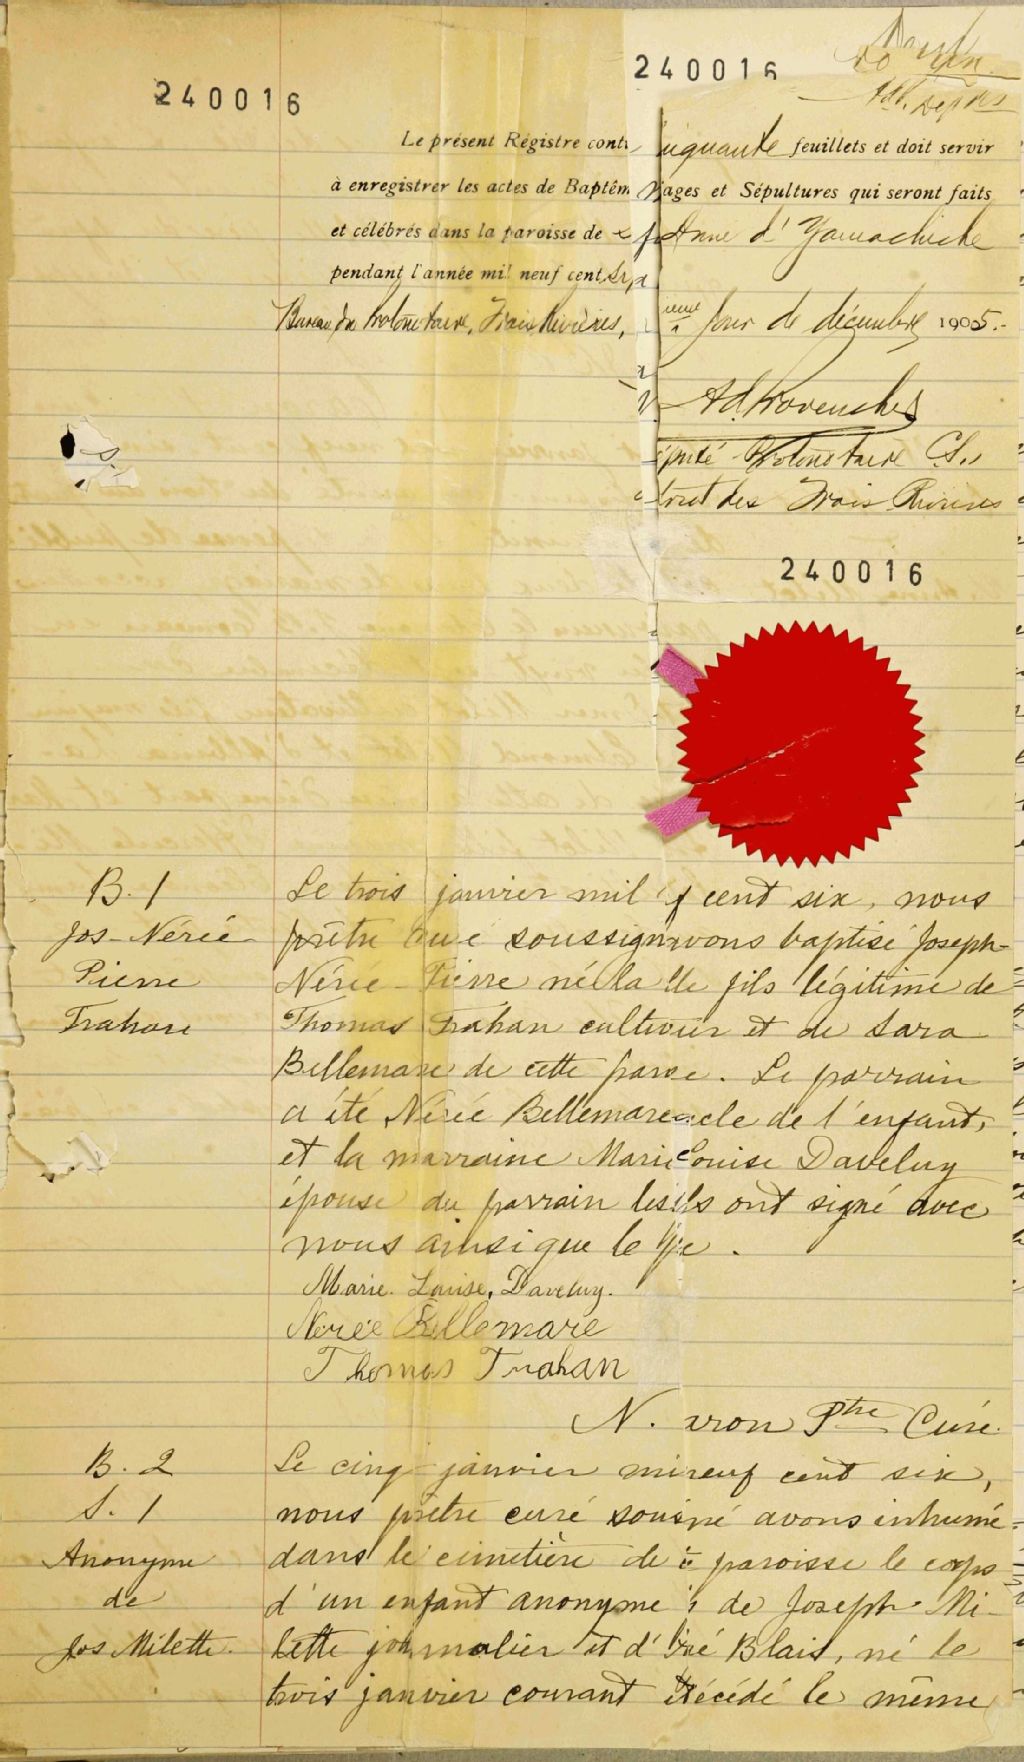 240016
240016
Le présent Régistre cont inquante feuillets et doit servir
à enregistrer les actes de Baptêm iages et Sépultures qui seront faits
et célébrés dans la paroisse de Anne d'Yamachiche
pendant l'année mil neuf cent
Bureau du Protonotaire, Trois Rivières, ième jour de décembre 1905.
Ad Provencher
éputé Protonotaire C.S.,
trict des Trois Rivières
240016
B. 1
Jos-Nérée
Pierre
Trahan
Le trois janvier mil f cent six, nous
prêtre curé soussign avons baptisé Joseph-
Nérée-Pierre né la lle fils légitime de
Thomas Trahan cultivateur et de Sara
Bellemare de cette paroisse. Le parrain
a été Nérée Bellemare cle de l'enfant,
et la marraine Marie Louise Daveluy
épouse du parrain lesqls ont signé avec
nous ainsi que le père.
Marie. Louise. Daveluy.
Nérée Bellemare
Thomas Trahan
N. aron Ptre Curé.
B. 2
S. 1
Anonyme
de
Jos Milette.
Le cinq janvier mil neuf cent six,
nous prêtre curé sousiné avons inhumé
dans le cimetière de paroisse le corps
d'un enfant anonyme de Joseph Mi-
lette journalier et d' Blais, né le
trois janvier courant et décédé le même